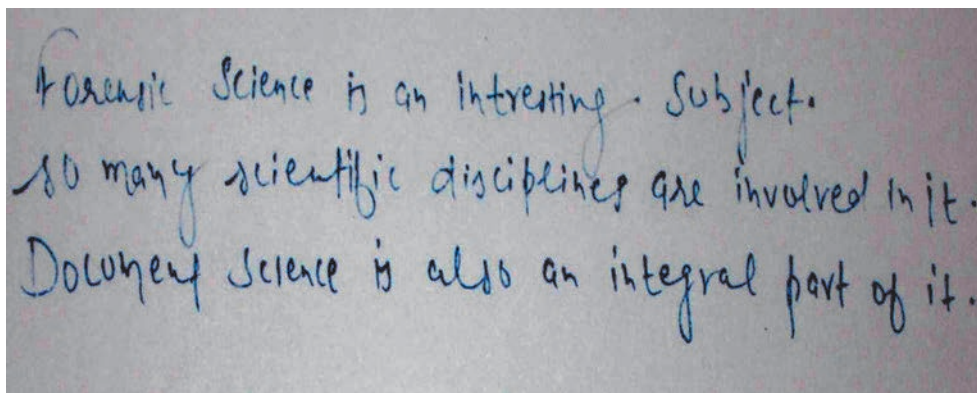 Forensic Science is an intresting. Subject.
so many scientific disciplines are involved in it.
Document Science is also an integral part of it.